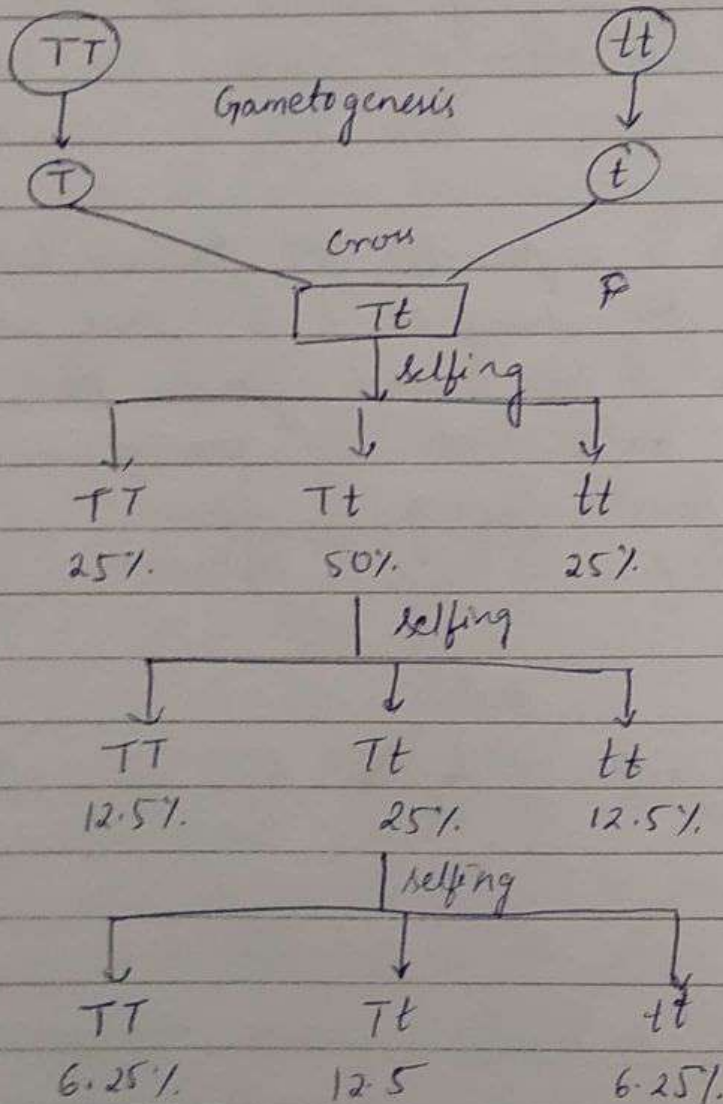 TT tt
Gametogenesis
T t
Cross
Tt
selfing
TT Tt tt
25%. 50%. 25%.
selfing
TT Tt tt
12.5%. 25%. 12.5%.
selfing
TT Tt tt
6.25%. 12.5 6.25%.